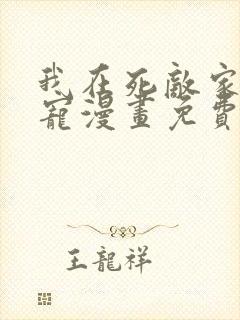 我在死敵家
寵漫畫免費
王龍祥